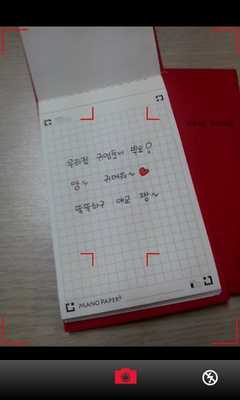 우리집 귀염둥이 빡꼬!
앙~ 귀여워~
똑똑하구 애교 짱~
MANO PAPER